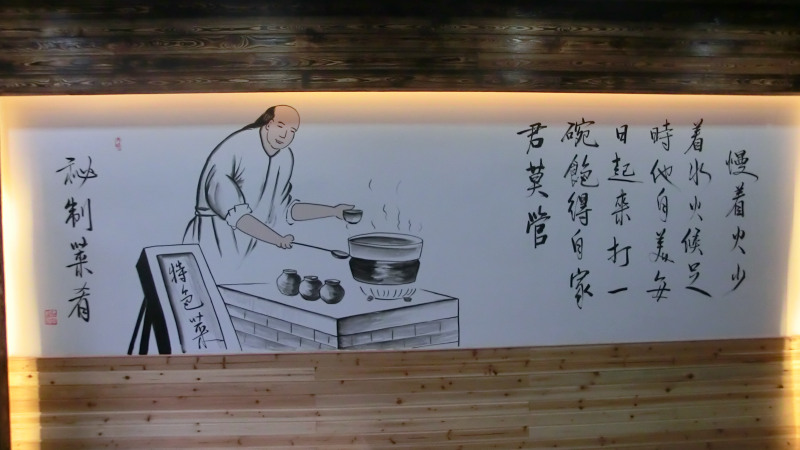 慢着火少
着水火候足
時他自美每
日起来打一
碗飽得自家
君莫管
秘制菜肴
特色菜